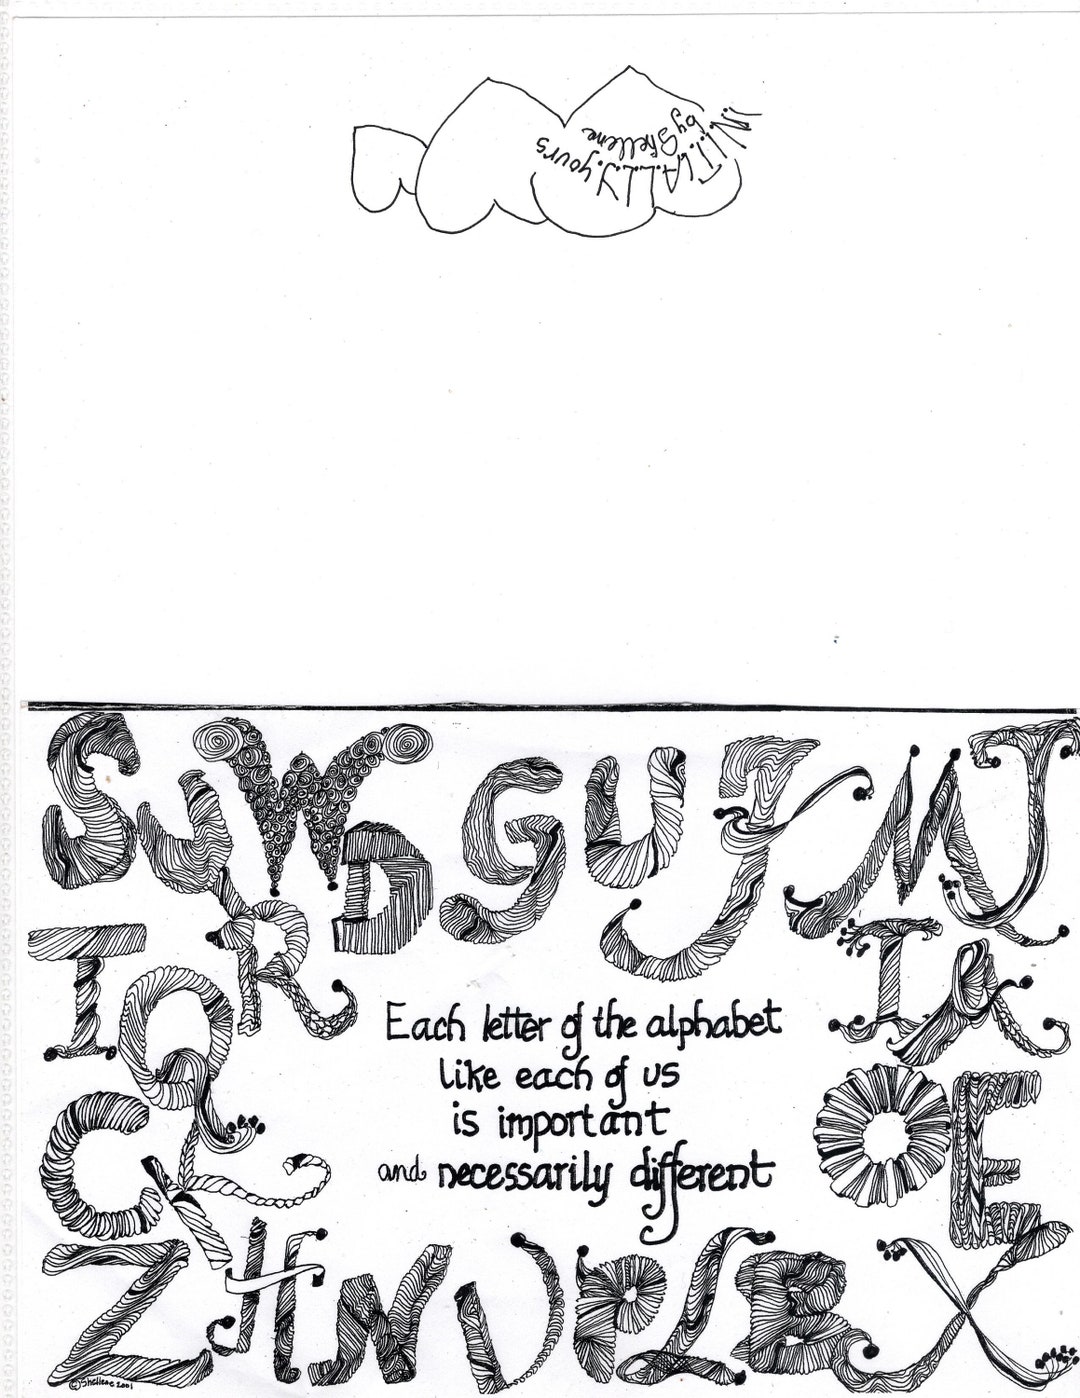 I.N.I.T.I.A.L.L.Y. yours
by Shellene
S Y W D G U F M J
T R I A
Q
Each letter of the alphabet
like each of us
is important
and necessarily different
C K O E
Z H N V P L B X
© Shellene 2001